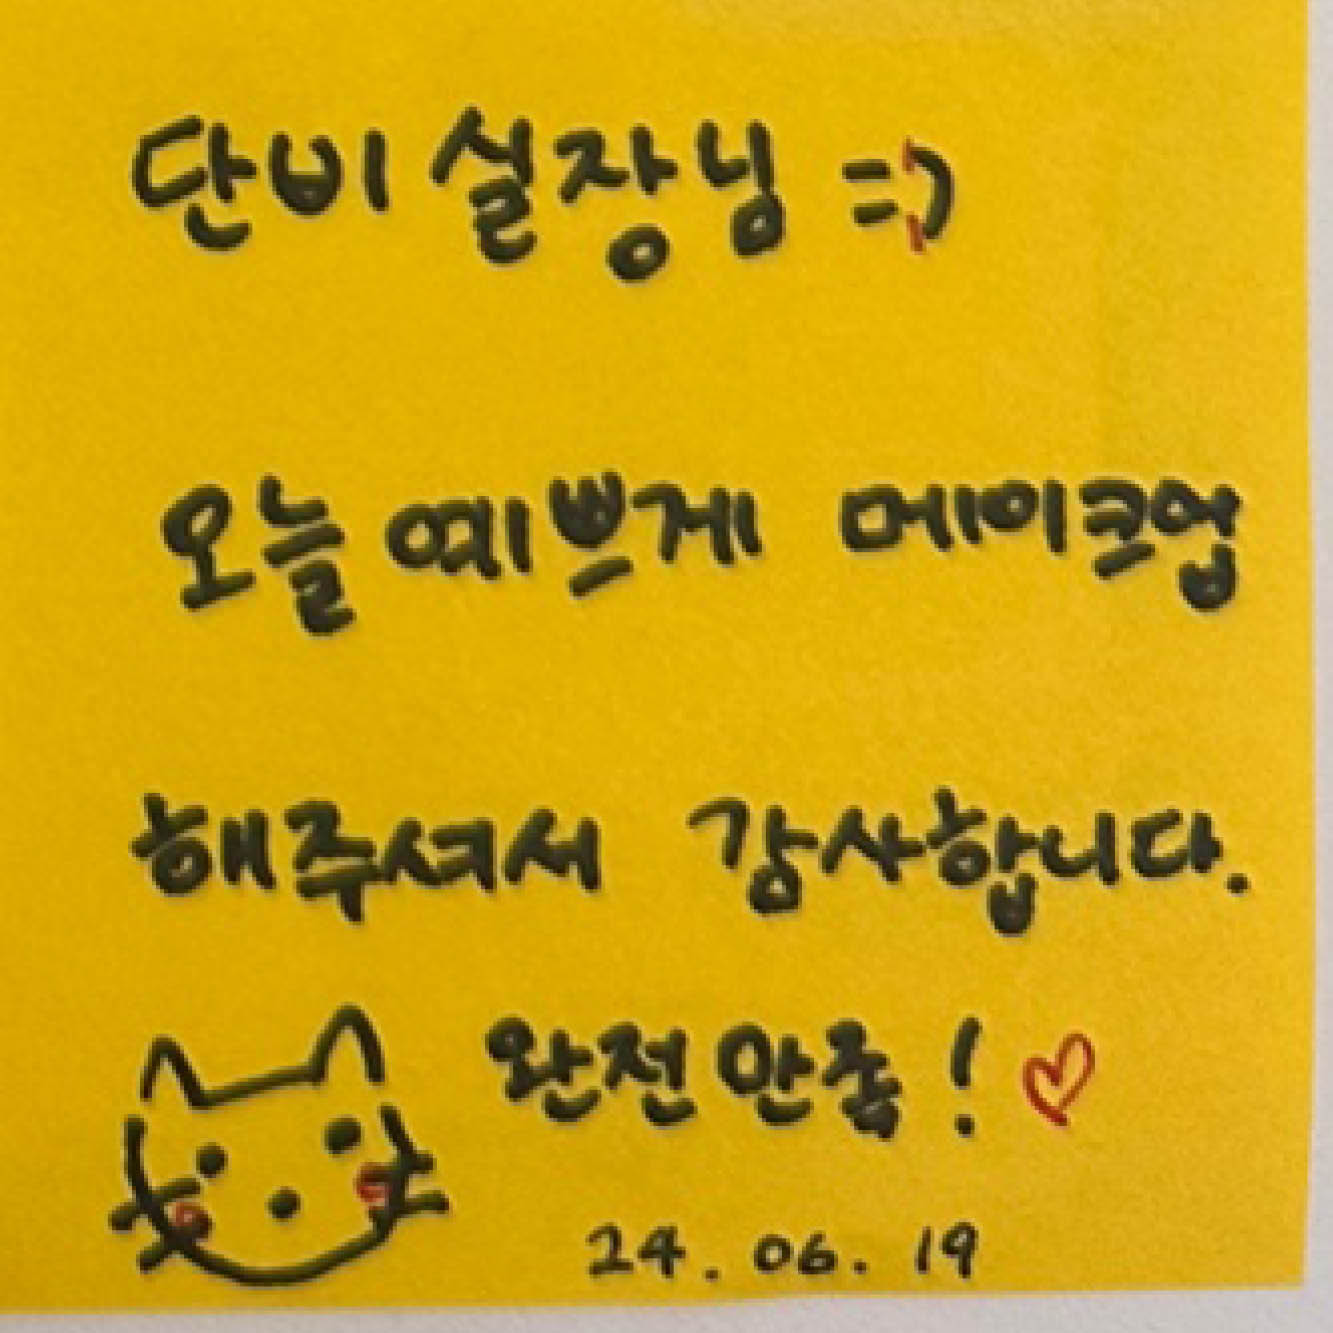 단비 실장님 =:)
오늘 예쁘게 메이크업
해주셔서 감사합니다.
완전 만족 ! ♡
24. 06. 19